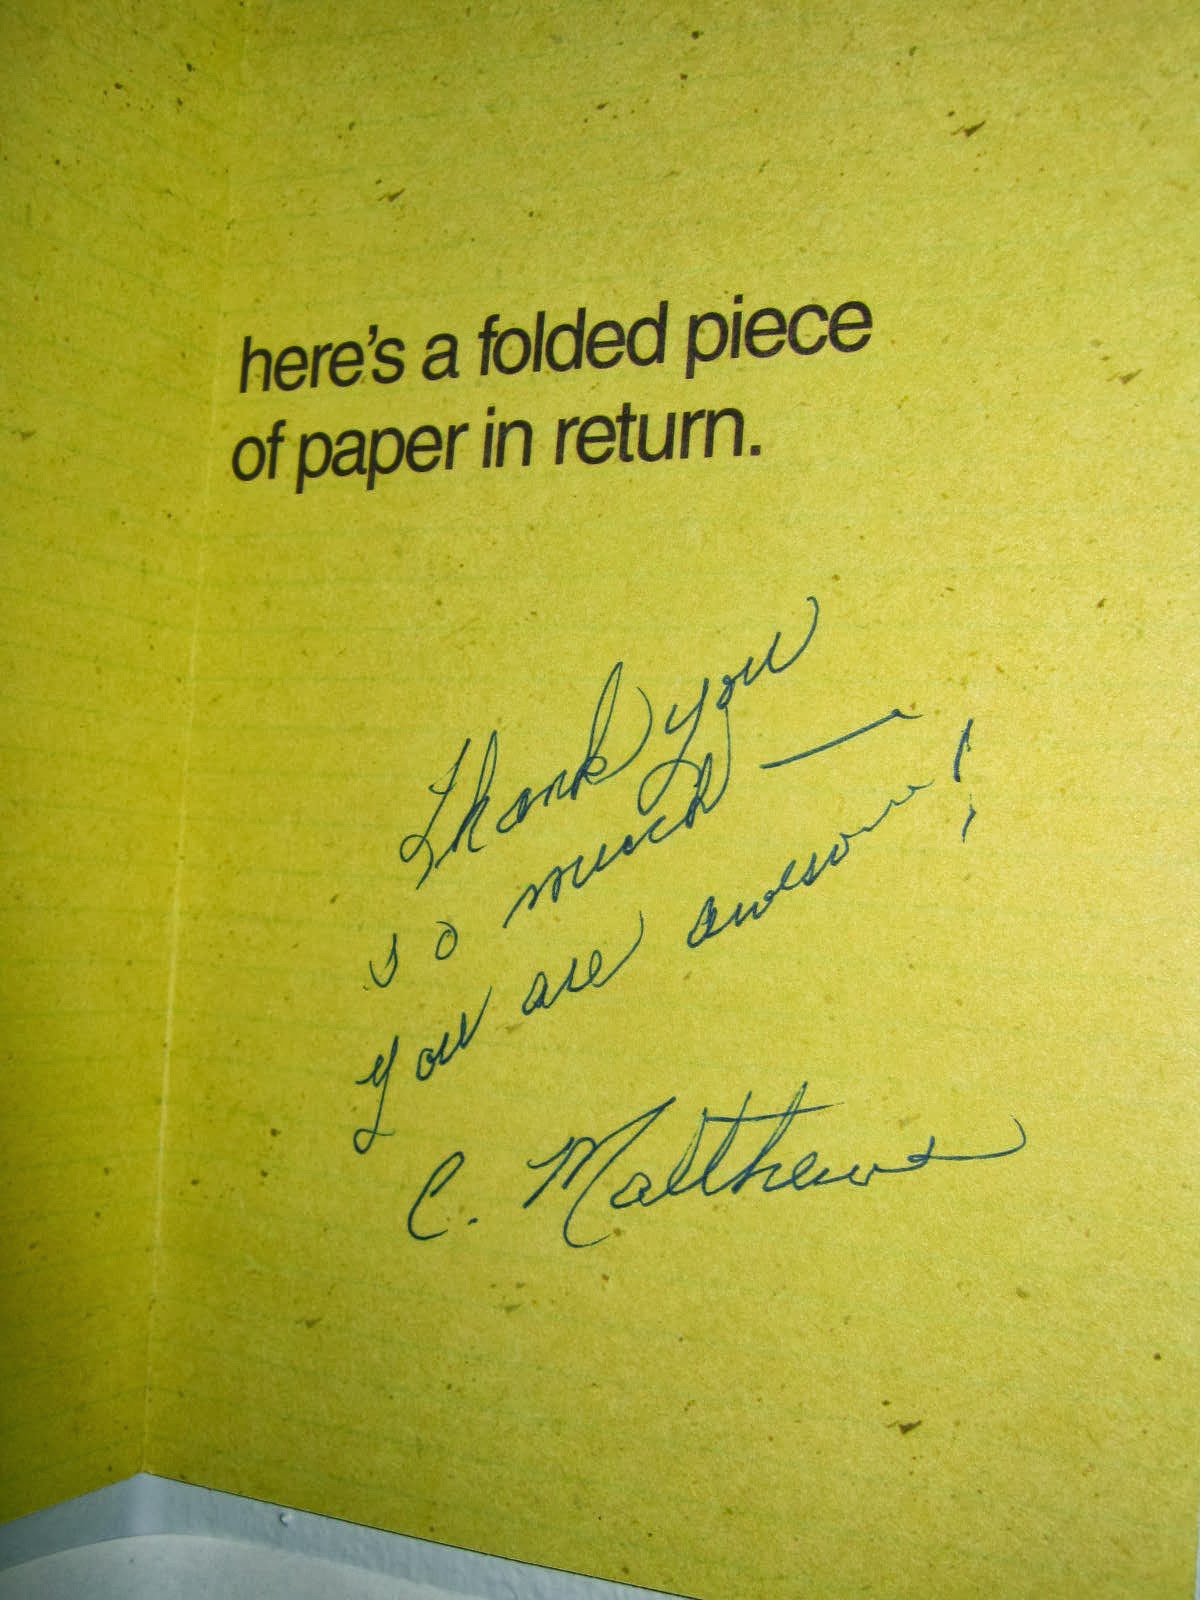 here's a folded piece
of paper in return.
Thank you
so much —
you are awesome!
C. Matthews